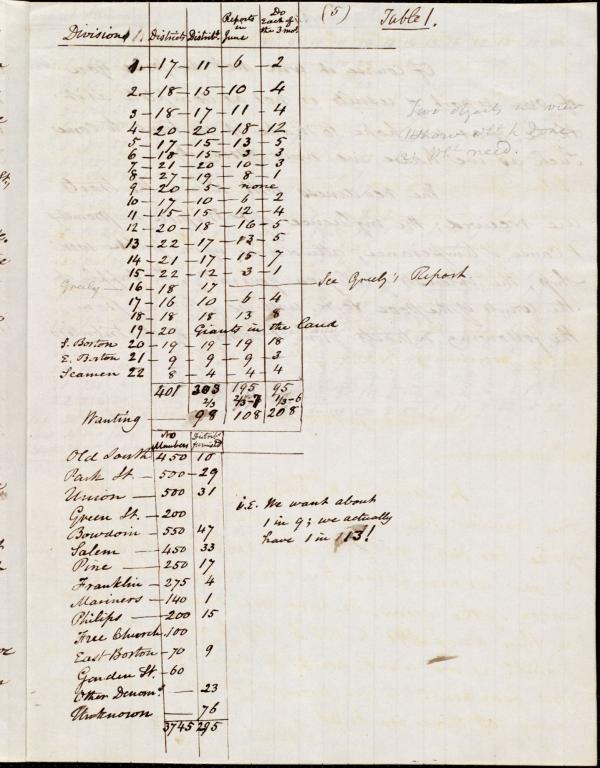 (5) Table 1.
Divisions Districts Distribs. Reports in June Do Each of the 3 mos.
1. - 17 - 11 - 6 - 2
2. - 18 - 15 - 10 - 4
3 - 18 - 17 - 11 - 4
4 - 20 - 20 - 18 - 12
5 - 17 - 15 - 13 - 5
6 - 18 - 15 - 3 - 3
7 - 21 - 20 - 10 - 3
8 - 27 - 19 - 8 - 1
9 - 20 - 5 - none
10 - 17 - 10 - 6 - 2
11 - 15 - 15 - 12 - 4
12 - 20 - 18 - 16 - 5
13 - 22 - 17 - 13 - 5
14 - 21 - 17 - 15 - 7
15 - 22 - 12 - 3 - 1
Greely - 16 - 18 - 17 - See Greely's Report
17 - 16 - 10 - 6 - 4
18 - 18 - 18 - 13 - 8
19 - 20 Giants in the land
S. Boston 20 - 19 - 19 - 19 - 18
E. Boston 21 - 9 - 9 - 9 - 3
Seamen 22 - 8 - 4 - 4 - 4
401 303 195 95
2/3 2/3-7 1/3-6
Wanting - 98 108 208
No Members Distribs. furnished
Old South 450 10
Park St. - 500 - 29
Union - 500 31
Green St. - 200
Bowdoin - 550 47
Salem - 450 33
Pine - 250 17
Franklin - 275 4
Mariners - 140 1
Philips - 200 15
Free Church - 100
East Boston - 70 9
Garden St. - 60
Other Denoms. - 23
Unknown - 76
3745 295
i.E. We want about
1 in 9; we actually
have 1 in 113!
Two objects in view
need.